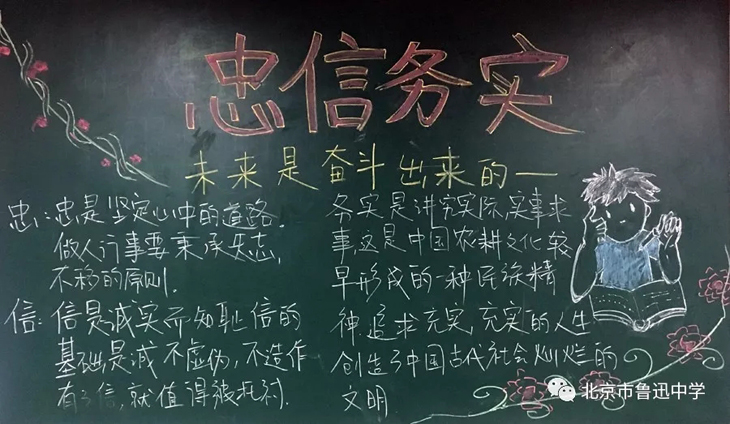 忠信务实
未来是奋斗出来的一
忠:忠是坚定心中的道路.
做人行事要秉承矢志,
不移的原则.
信:信是诚实而知耻信的
基础是诚不虚伪,不造作
有信,就值得被
务实是讲究实际,实事求
事,这是中国农耕文化较
早形成的一种民族精
神追求充实,充实的人生
创造了中国古代社会灿烂的
文明
北京市鲁迅中学